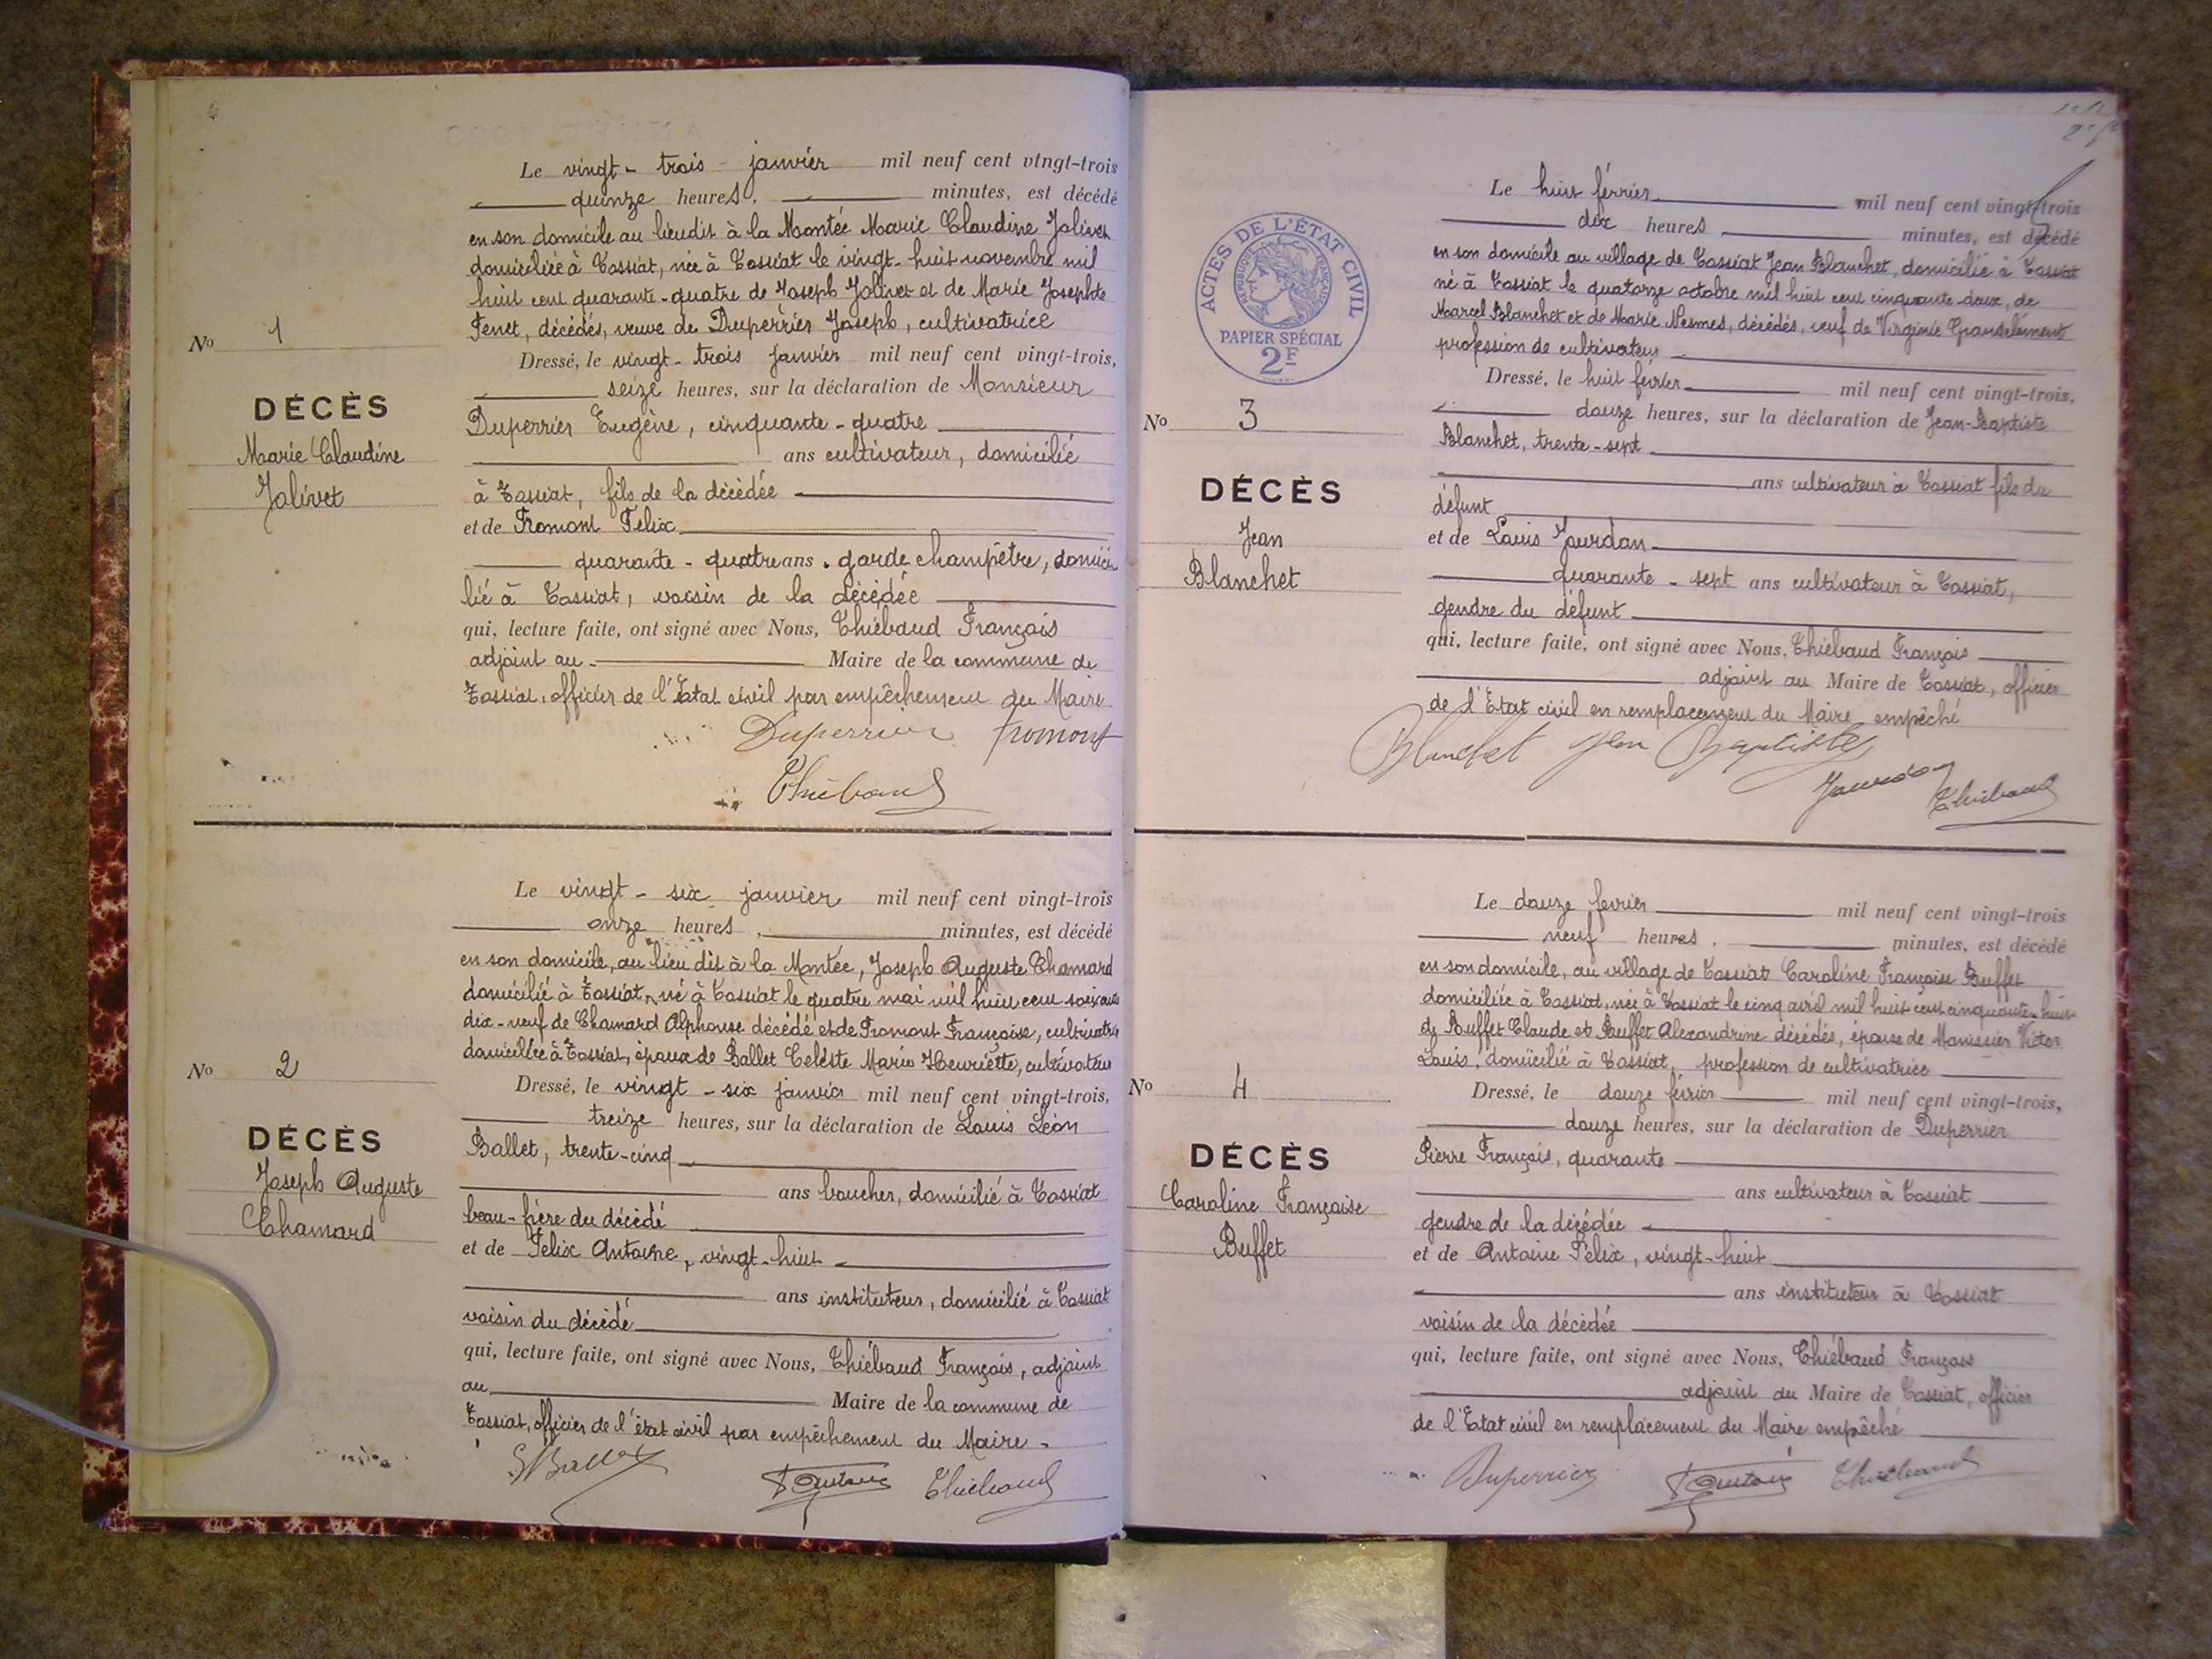 Le vingt-trois janvier mil neuf cent vingt-trois
quinze heures, minutes, est décédé
en son domicile au lieudit à la Montée Marie Claudine Jolivet
domiciliée à Tossiat, née à Tossiat le vingt-huit novembre mil
huit cent quarante-quatre de Joseph Jolivet et de Marie Josephte
Tenet, décédés, veuve de Duperrier Joseph, cultivatrice
No 1
Dressé, le vingt-trois janvier mil neuf cent vingt-trois,
seize heures, sur la déclaration de Monsieur
DÉCÈS
Marie Claudine
Jolivet
Duperrier Eugène, cinquante-quatre
ans cultivateur, domicilié
à Tossiat, fils de la décédée
et de Fromont Félix
quarante-quatre ans. garde champêtre, domici
lié à Tossiat, voisin de la décédée
qui, lecture faite, ont signé avec Nous, Thiébaud François
adjoint au Maire de la commune de
Tossiat, officier de l'Etat civil par empêchement du Maire
Duperrier Fromont
Thiébaud
Le vingt-six janvier mil neuf cent vingt-trois
onze heures, minutes, est décédé
en son domicile, au lieu dit à la Montée, Joseph Auguste Chamard
domicilié à Tossiat, né à Tossiat le quatre mai mil huit cent soixante
dix-neuf de Chamard Alphonse décédé et de Fromont Françoise, cultivatrice
domiciliée à Tossiat, époux de Ballet Céleste Marie Henriette, cultivateur
No 2
Dressé, le vingt-six janvier mil neuf cent vingt-trois,
treize heures, sur la déclaration de Louis Léon
DÉCÈS
Joseph Auguste
Chamard
Ballet, trente-cinq
ans boucher, domicilié à Tossiat
beau-frère du décédé
et de Félix Antoine, vingt-huit
ans instituteur, domicilié à Tossiat
voisin du décédé
qui, lecture faite, ont signé avec Nous, Thiébaud François, adjoint
au Maire de la commune de
Tossiat, officier de l'état civil par empêchement du Maire.
Ballet Antoine Thiébaud
ACTES DE L'ÉTAT CIVIL
RÉPUBLIQUE FRANÇAISE
PAPIER SPÉCIAL
2F
Le huit février mil neuf cent vingt-trois
dix heures minutes, est décédé
en son domicile au village de Tossiat Jean Blanchet, domicilié à Tossiat
né à Tossiat le quatorze octobre mil huit cent cinquante-deux, de
Marcel Blanchet et de Marie Nesmes, décédés, veuf de Virginie
profession de cultivateur
Dressé, le huit février mil neuf cent vingt-trois,
No 3
douze heures, sur la déclaration de Jean-Baptiste
Blanchet, trente-sept
DÉCÈS
Jean
Blanchet
ans cultivateur à Tossiat fils du
défunt
et de Louis Jourdan
quarante-sept ans cultivateur à Tossiat,
gendre du défunt
qui, lecture faite, ont signé avec Nous, Thiébaud François
adjoint au Maire de Tossiat, officier
de l'Etat civil en remplacement du Maire empêché
Blanchet Jean Baptiste
Jourdan Thiébaud
Le douze fevrier mil neuf cent vingt-trois
neuf heures, minutes, est décédé
en son domicile, au village de Tossiat Caroline Françoise Buffet
domiciliée à Tossiat, née à Tossiat le cinq avril mil huit cent cinquante-huit
de Buffet Claude et Buffet Alexandrine décédés, épouse de Manissier Victor
Louis, domicilié à Tossiat, profession de cultivatrice
No 4
Dressé, le douze février mil neuf cent vingt-trois,
douze heures, sur la déclaration de Duperrier
DÉCÈS
Caroline Françoise
Buffet
Pierre François, quarante
ans cultivateur à Tossiat
gendre de la décédée
et de Antoine Félix, vingt-huit
ans instituteur à Tossiat
voisin de la décédée
qui, lecture faite, ont signé avec Nous, Thiébaud François
adjoint au Maire de Tossiat, officier
de l'Etat civil en remplacement du Maire empêché
Duperrier Antoine Thiébaud